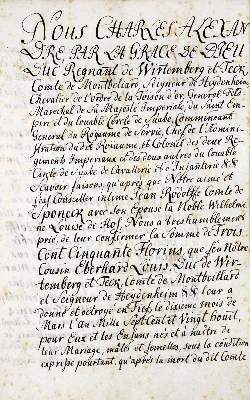 Nous CHARLES ALEXAN
DRE PAR LA GRACE DE DIEU
Duc Regnant de Wirtemberg et Teck,
Comte de Montbeliard, Seigneur de Heydenheim,
Chevalier de l'ordre de la Toison d'or, General Feld
Marechal de Sa Majesté Imperiale, du Saint Em-
pire et du louable Cercle de Suabe, Commendant
General du Royaume de Servie, Chef de l'Admini-
stration du dit Royaume, et Colonel des deux Re-
giments Imperiaux et des deux autres du louable
Cercle de Suabe de Cavallerie et d'Infanterie &&
Scavoir faisons, qu'après que Nôtre aimé et
feal Conseiller intime Jean Rodolffe Comte de
Sponeck avec son Epouse la Noble Wilhelmi-
ne Louise de Hof, Nous a tres humblement
prié, de leur confirmer la Somme de Trois
Cent Cinquante florins, que feu Nôtre
Cousin Eberhard Louis, Duc de Wir-
temberg et Teck, Comte de Montbeillard
et Seigneur de Heydenheim && leur a
donné et octroyé en Fief, le dixieme mois de
Mars l'an Mille Sept Cent et Vingt houit,
pour Eux et les Enfans nés et à naître de
leur Mariage, mâles et femelles, sous la condition
expresse pourtant, qu'après la mort du dit Comte